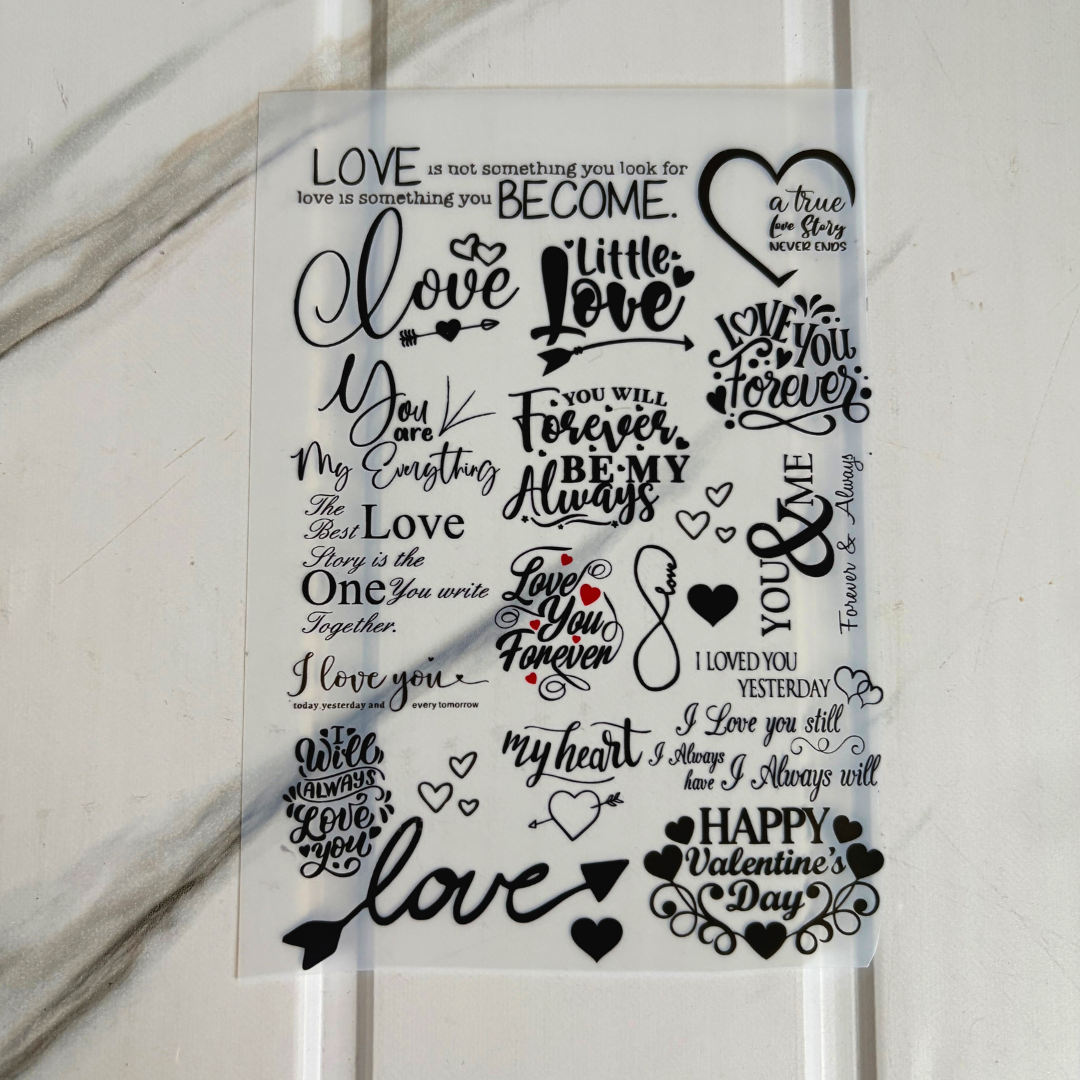 LOVE is not something you look for
love is something you BECOME.
a true
Love Story
NEVER ENDS
love
Little
Love
LOVE YOU
Forever
You
are
My Everything
YOU WILL
Forever
BE·MY
Always
YOU & ME
Forever & Always
The
Best Love
Story is the
One You write
Together.
Love
You
Forever
love
I love you
today,yesterday and every tomorrow
I LOVED YOU
YESTERDAY
I Love you still
I Always
have I Always will
I
Will
ALWAYS
Love
you
my heart
love
HAPPY
Valentine's
Day